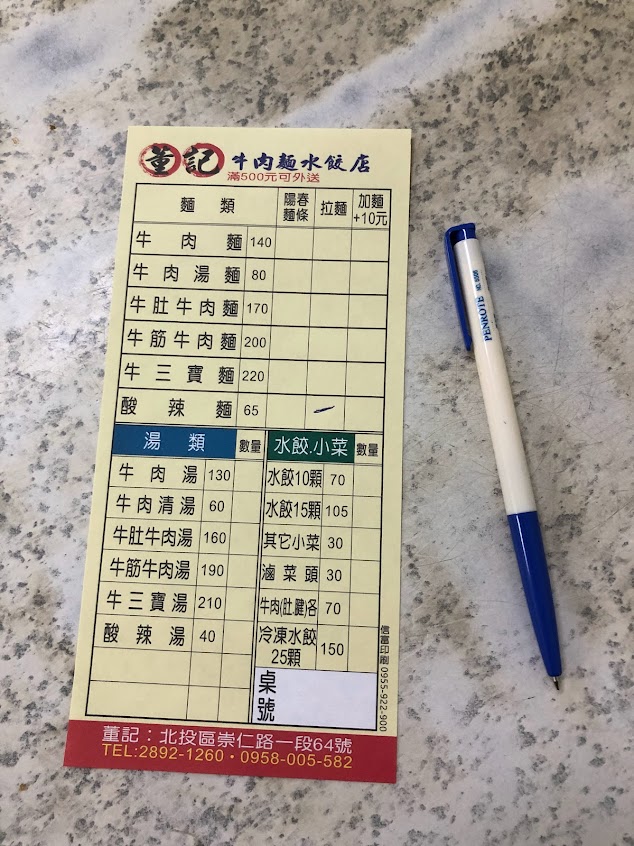 董記 牛肉麵水餃店
滿500元可外送
麵 類 陽春麵條 拉麵 加麵+10元
牛肉麵 140
牛肉湯麵 80
牛肚牛肉麵 170
牛筋牛肉麵 200
牛三寶麵 220
酸辣麵 65
湯 類 數量
牛肉湯 130
牛肉清湯 60
牛肚牛肉湯 160
牛筋牛肉湯 190
牛三寶湯 210
酸辣湯 40
水餃.小菜 數量
水餃10顆 70
水餃15顆 105
其它小菜 30
滷菜頭 30
牛肉(肚.腱)各 70
冷凍水餃25顆 150
桌號
信富印刷 0955-922-900
董記：北投區崇仁路一段64號
TEL:2892-1260・0958-005-582
PENROTE NO. 6506